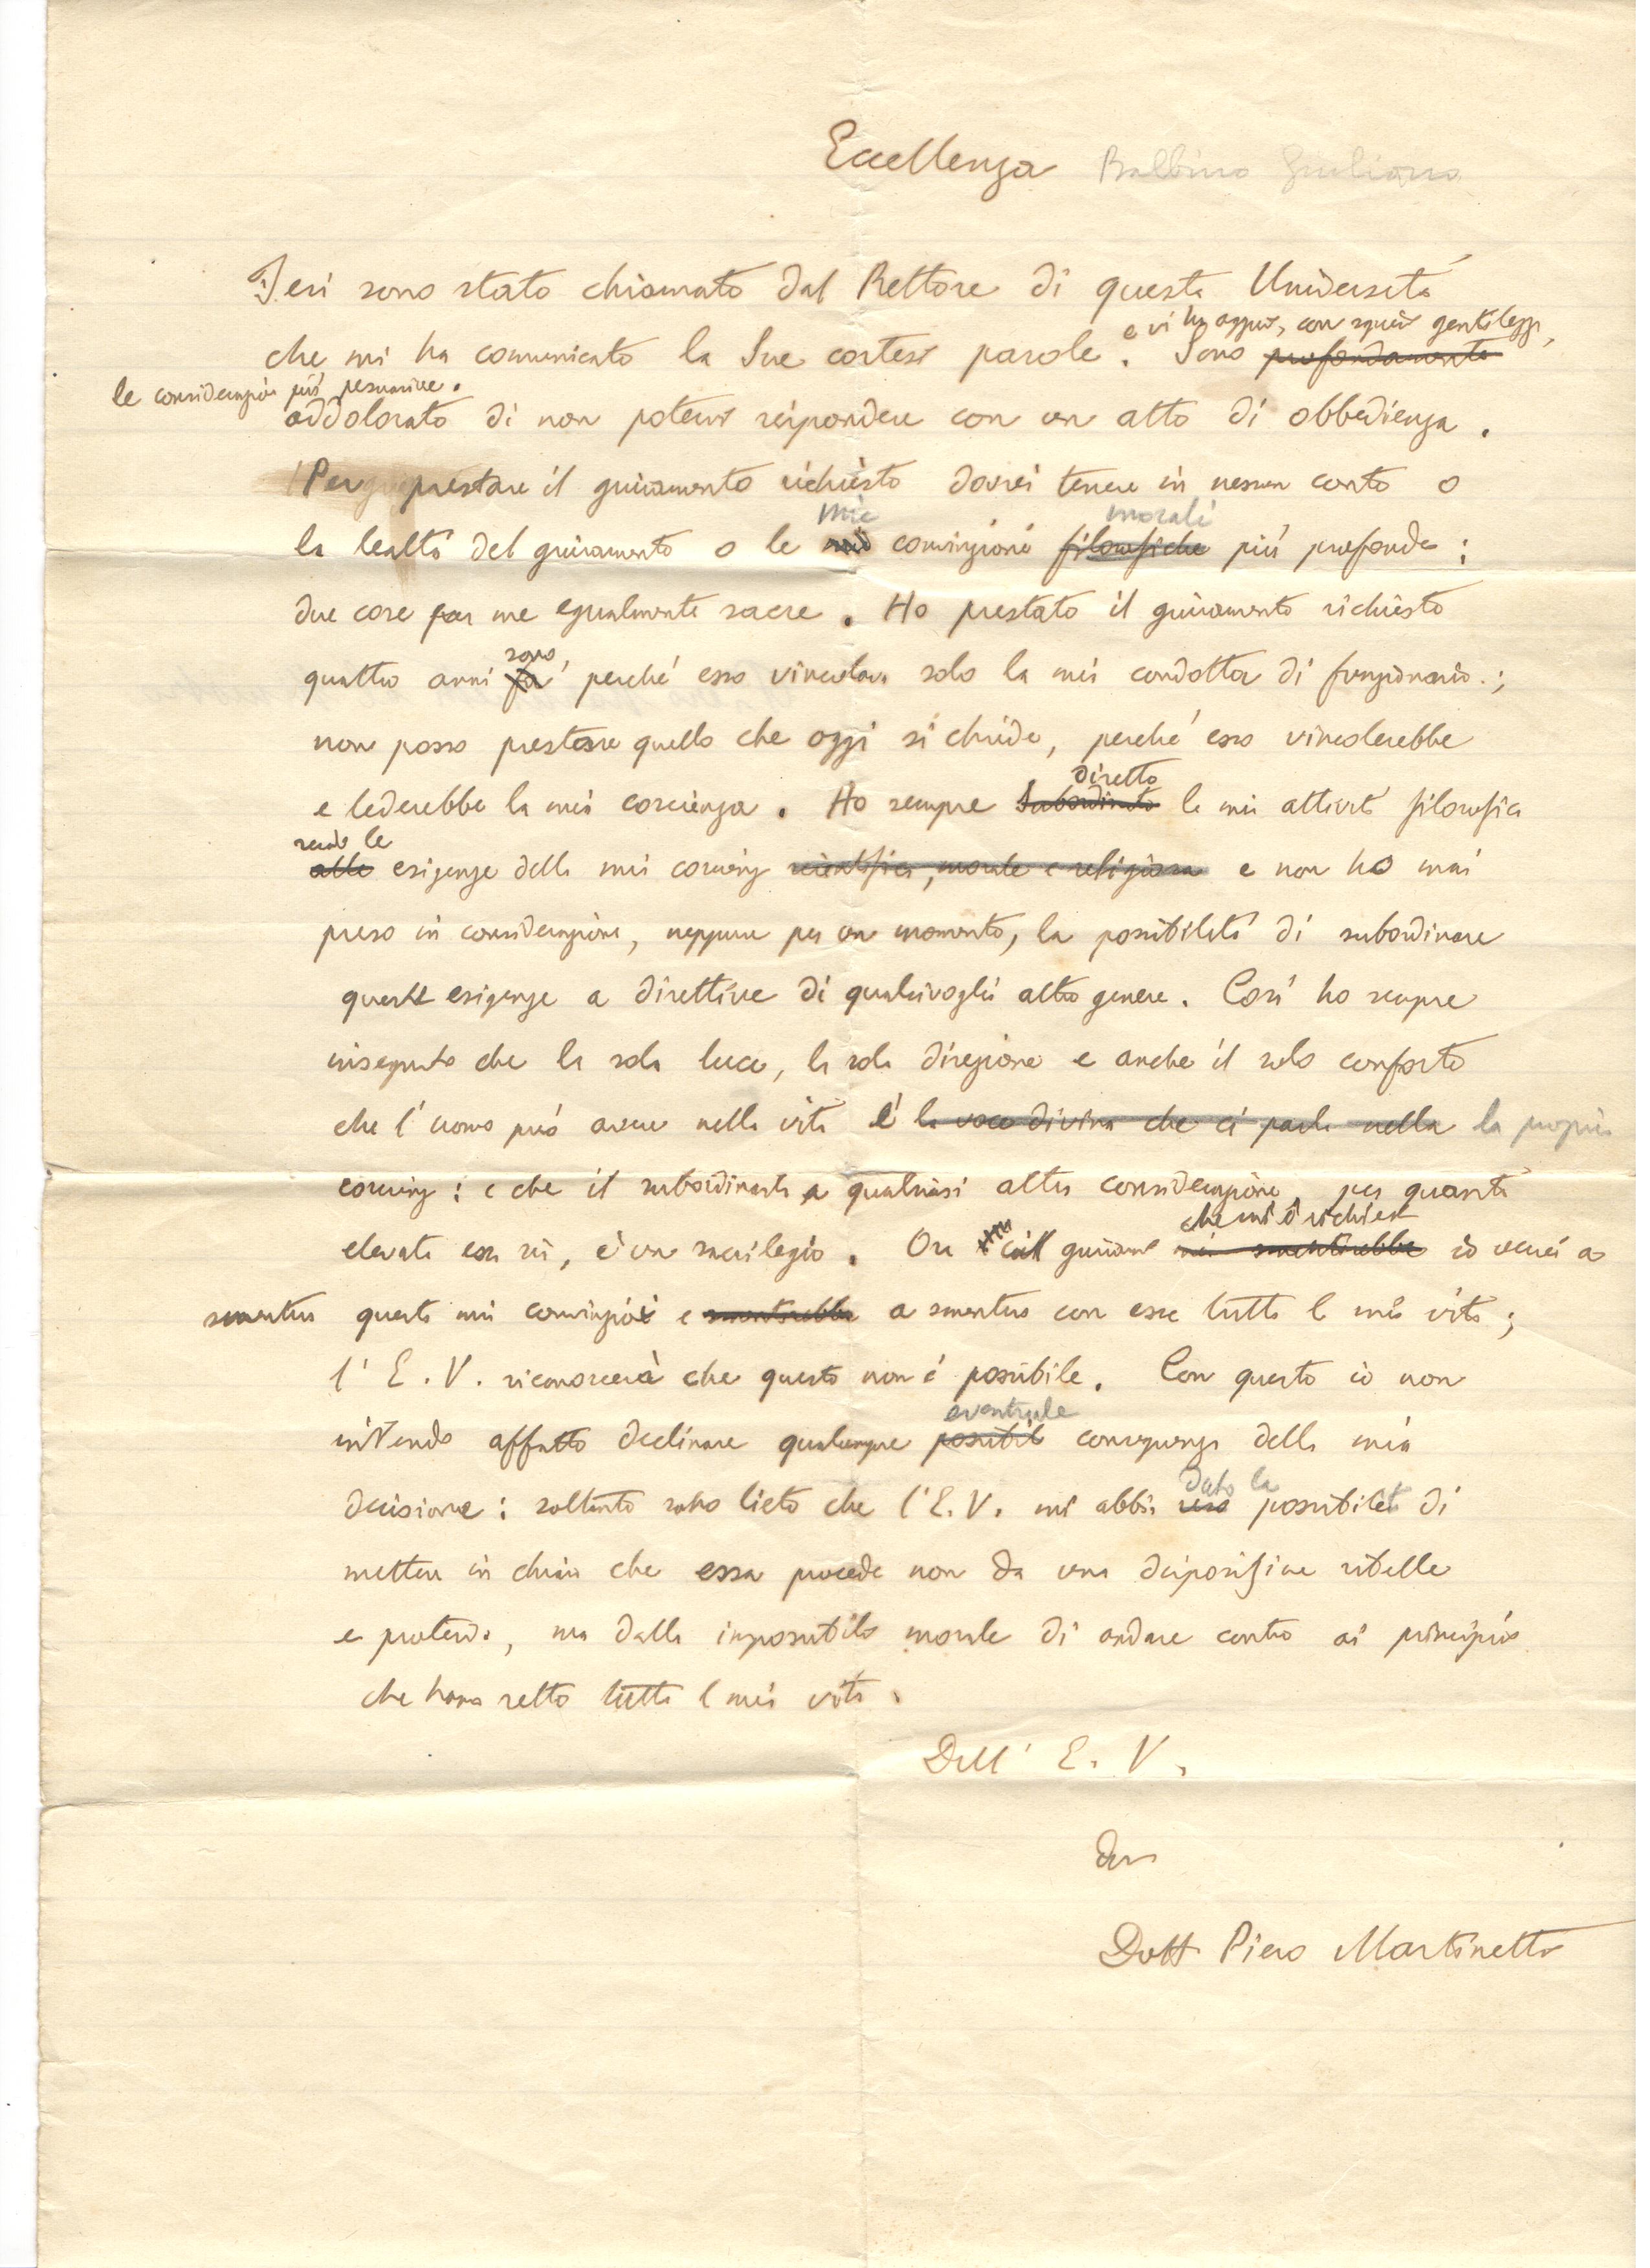 Eccellenza Balbino Giuliano
Ieri sono stato chiamato dal Rettore di questa Università
e vi ha aggiunto, con squisita gentilezza,
che mi ha comunicato la Sue cortesi parole. Sono profondamente
le considerazioni più persuasive.
addolorato di non poterVi rispondere con un atto di obbedienza.
Per prestare il giuramento richiesto dovrei tenere in nessun conto o
mie morali
la lealtà del giuramento o le mie convinzioni filosofiche più profonde:
due cose per me egualmente sacre. Ho prestato il giuramento richiesto
sono,
quattro anni fa perché esso vincolava solo la mia condotta di funzionario;
non posso prestare quello che oggi si chiede, perché esso vincolerebbe
diretto
e lederebbe la mia coscienza. Ho sempre subordinato la mia attività filosofica
secondo le
alle esigenze della mia coscienza scientifica, morale e religiosa e non ho mai
preso in considerazione, neppure per un momento, la possibilità di subordinare
queste esigenze a direttive di qualsivoglia altro genere. Così ho sempre
insegnato che la sola luce, la sola direzione e anche il solo conforto
che l'uomo può avere nella vita è la voce divina che ci parla nella la propria
coscienza: e che il subordinarla a qualsiasi altra considerazione, per quanto
che mi è richiesto
elevata essa sia, è un sacrilegio. Ora il giuramento mi smentirebbe io verrei a
smentire queste mie convinzioni e smentirebbe a smentire con esse tutta la mia vita;
l'E.V. riconoscerà che questo non è possibile. Con questo io non
eventuale
intendo affatto declinare qualunque possibile conseguenza della mia
dato la
decisione: soltanto sono lieto che l'E.V. mi abbia reso possibilità di
mettere in chiaro che essa procede non da una disposizione ribelle
e proterva, ma dalla impossibilità morale di andare contro ai principii
che hanno retto tutta la mia vita.
Dell' E. V.
Dev
Dott Piero Martinetti